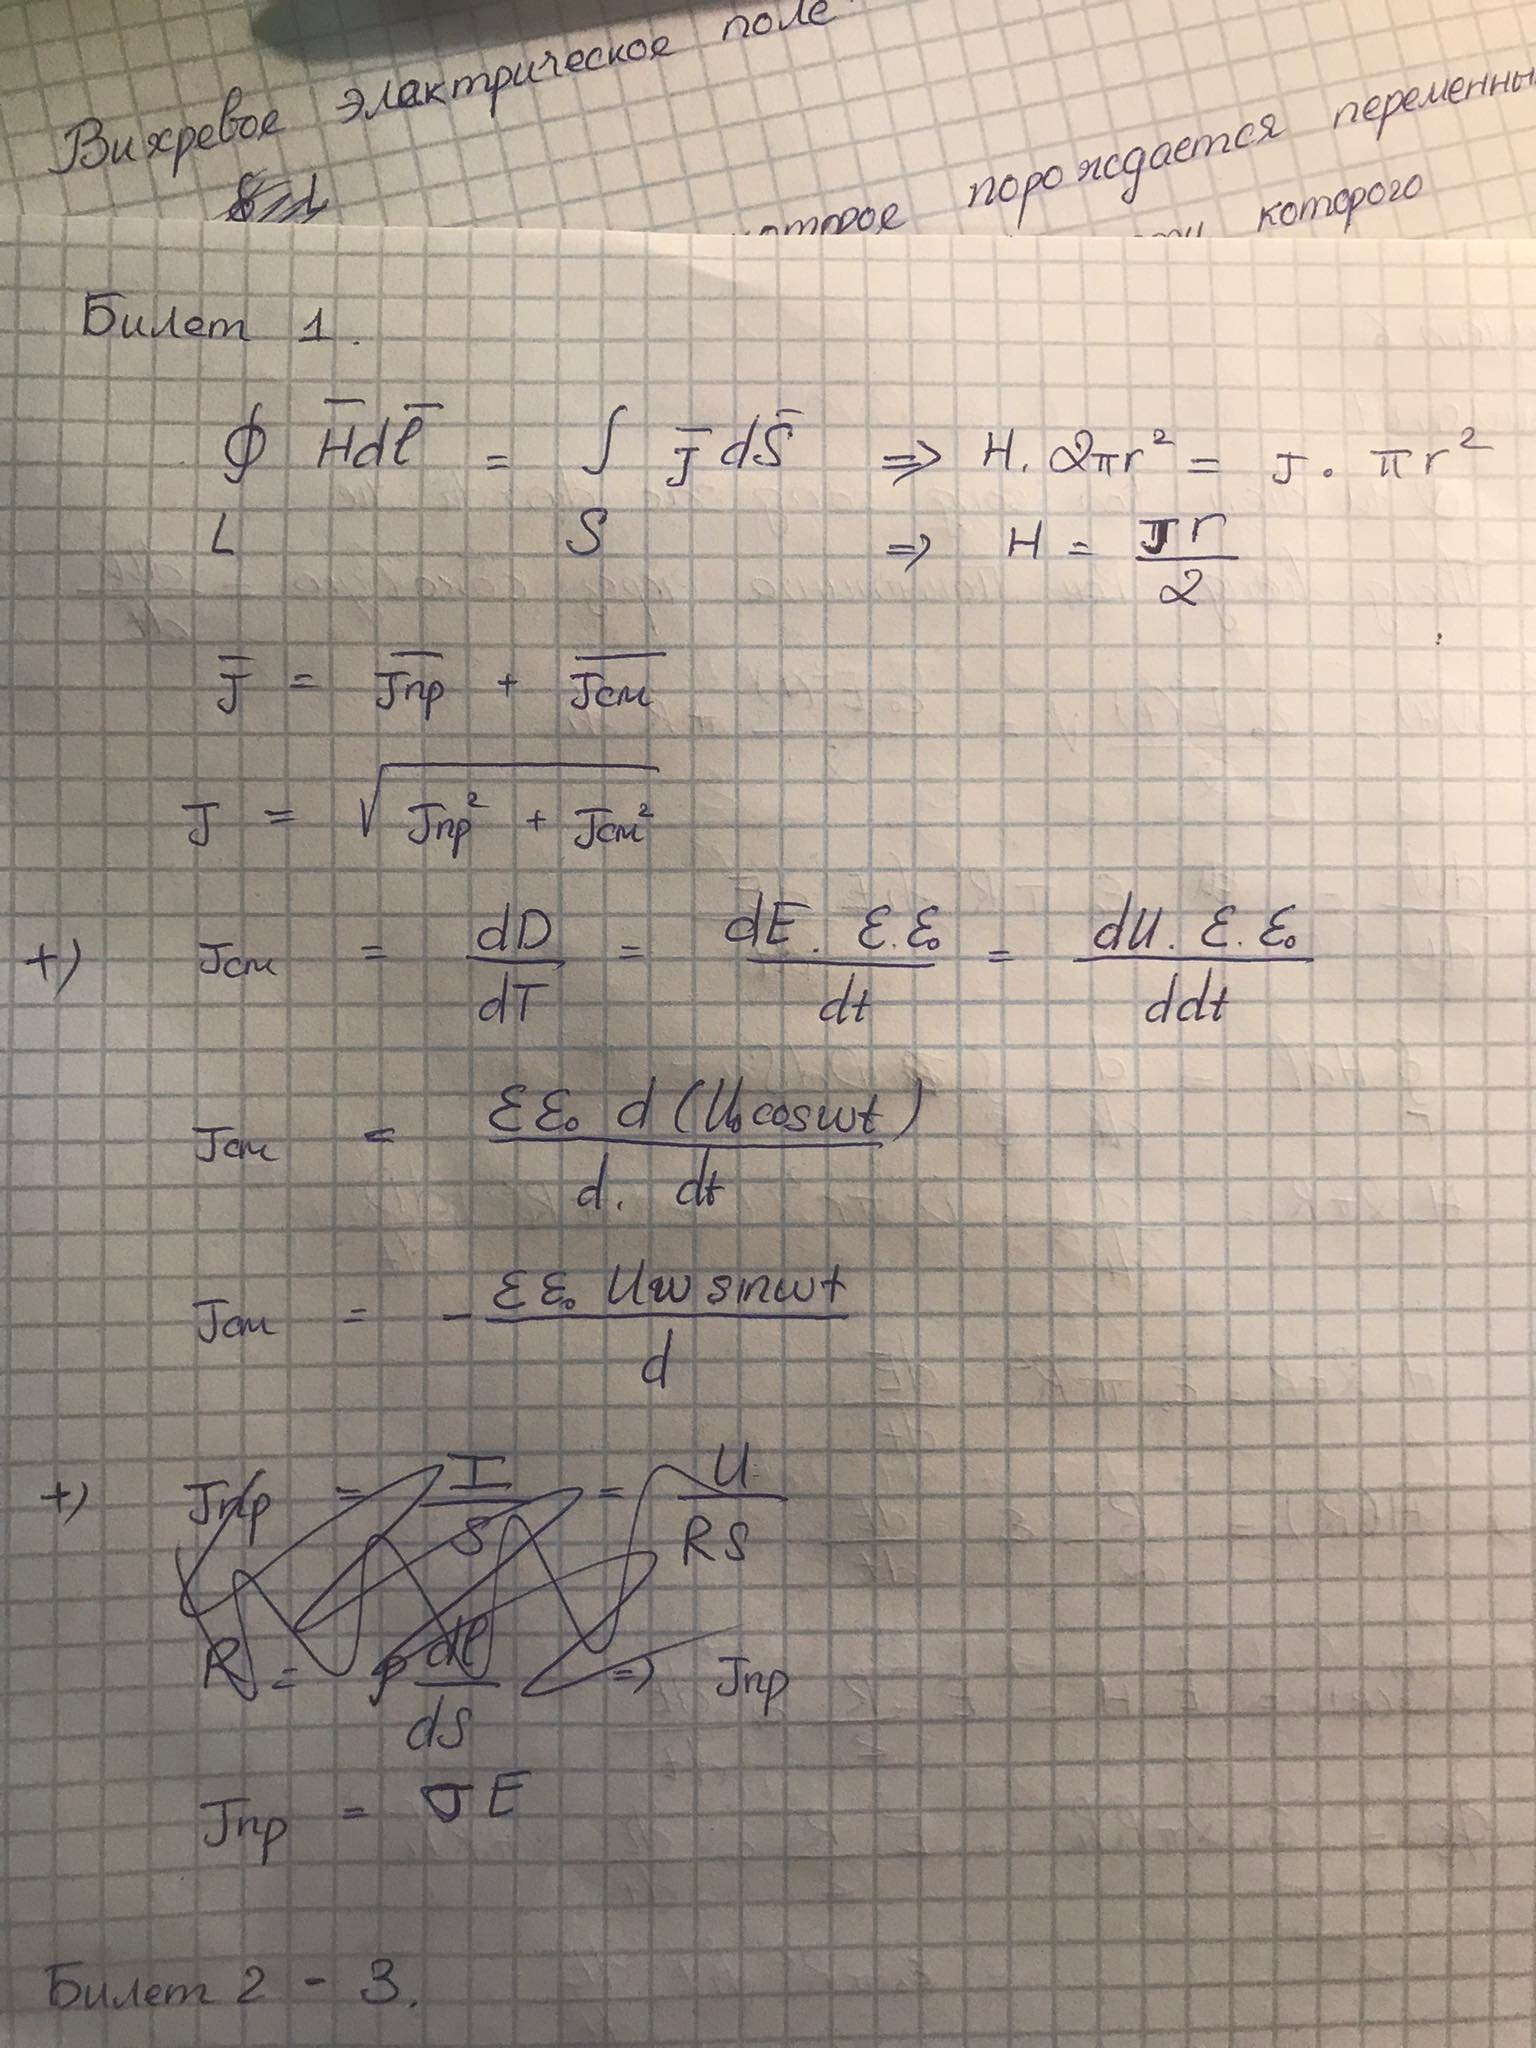 Вихревое элактрическое поле
которое порождается переменны
которого
Билет 1.
∮ H̅dl̅ = ∫ J̅ dS̅ ⇒ H. 2πr² = J . πr²
L S ⇒ H = Jr/2
J̅ = J̅пр + J̅см
J = √(Jпр² + Jсм²)
+) Jсм = dD/dT = dE. ε.ε₀/dt = dU. ε.ε₀/ddt
Jсм = εε₀ d (U₀cosωt)/d. dt
Jсм = - εε₀ Uω sinωt/d
+) Jпр = I/S = U/RS
R = ρ dl/dS ⇒ Jпр
Jпр = σE
Билет 2 - 3.